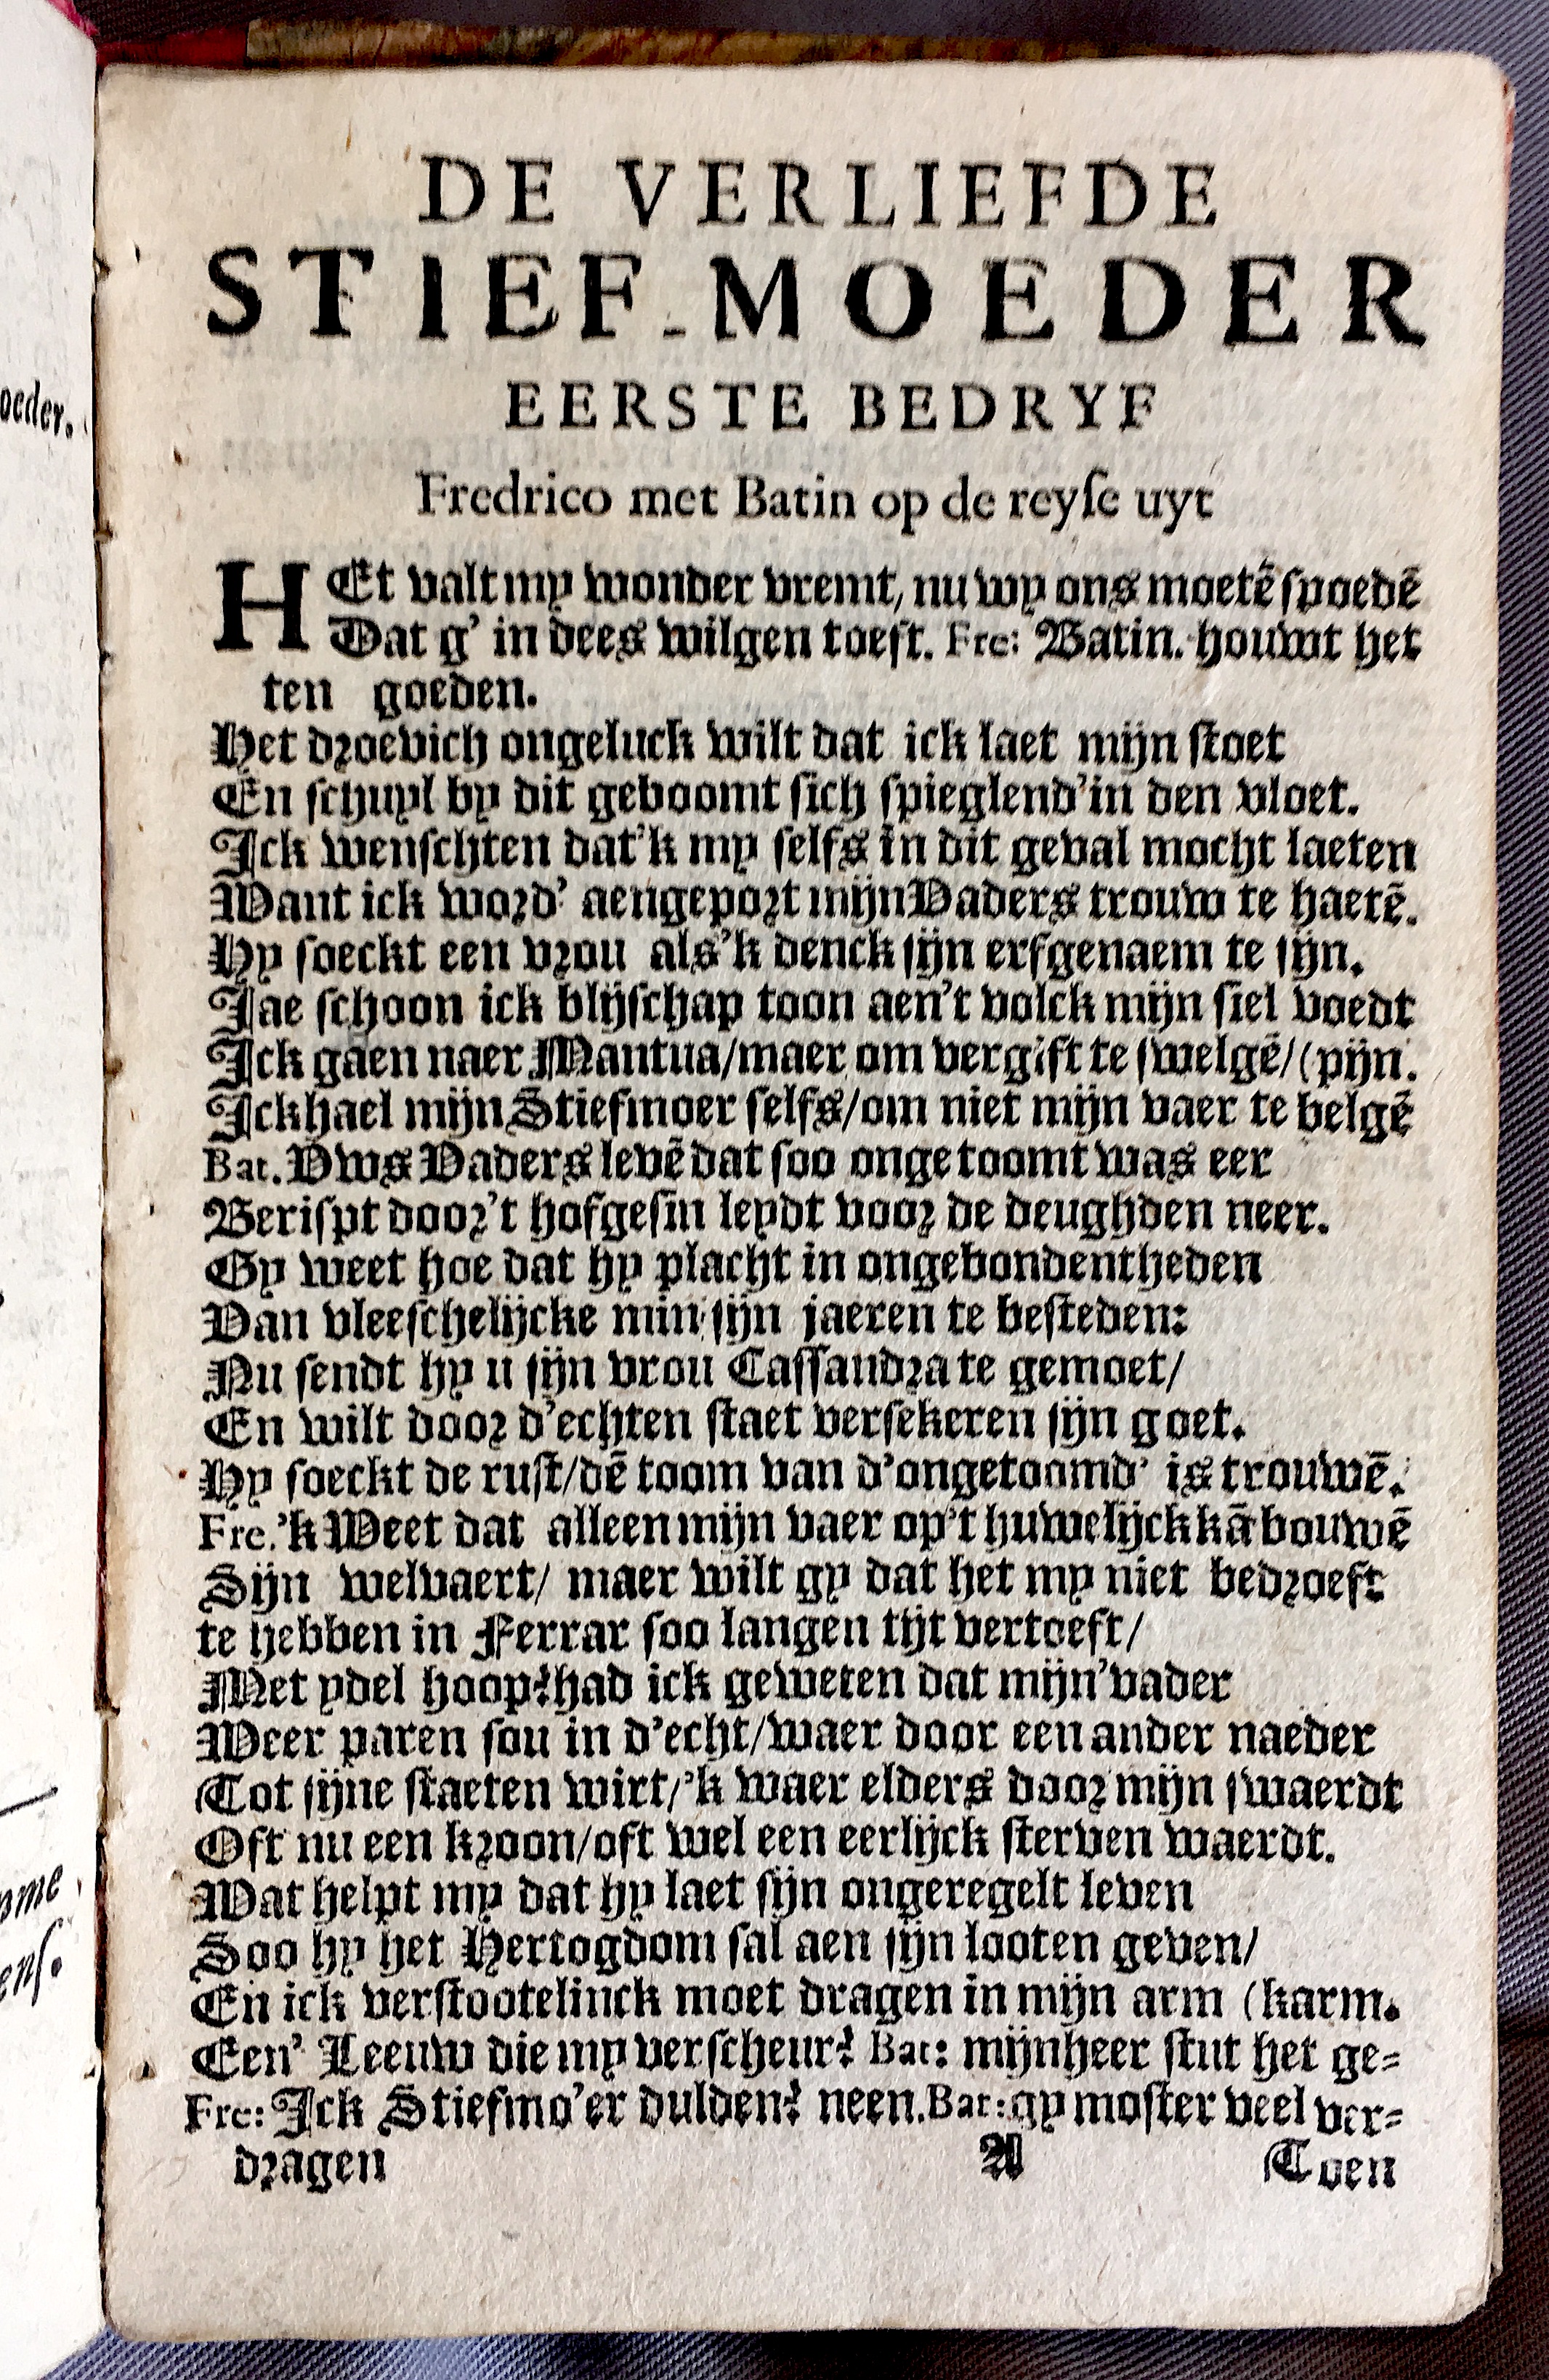 DE VERLIEFDE
STIEF-MOEDER
EERSTE BEDRYF
Fredrico met Batin op de reyse uyt
HEt valt my wonder vremt, nu wy ons moetē spoedē
Dat g' in dees wilgen toeft. Fre: Batin. houwt het
ten goeden.
Het droevich ongeluck wilt dat ick laet mijn stoet
En schuyl by dit geboomt sich spieglend' in den vloet.
Ick wenschten dat'k my selfs in dit geval mocht laeten
Want ick word' aengeport mijn Vaders trouw te haetē.
Hy soeckt een vrou als'k denck sijn erfgenaem te sijn.
Jae schoon ick blijschap toon aen't volck mijn siel voedt
Ick gaen naer Mantua/maer om vergift te swelgē/(pijn.
Ick hael mijn Stiefmoer selfs/om niet mijn vaer te belgē
Bat. Vws Vaders levē dat soo ongetoomt was eer
Berispt door't hofgesin leydt voor de deughden neer.
Gy weet hoe dat hy placht in ongebondentheden
Van vleeschelijcke min sijn jaeren te besteden:
Nu sendt hy u sijn vrou Cassandra te gemoet/
En wilt door d'echten staet versekeren sijn goet.
Hy soeckt de rust/dē toom van d'ongetoomd' is trouwē.
Fre. 'k Weet dat alleen mijn vaer op't huwelijck kā bouwē
Sijn welvaert/ maer wilt gy dat het my niet bedroeft
te hebben in Ferrar soo langen tijt vertoeft/
Met ydel hoop? had ick geweten dat mijn' vader
Weer paren sou in d'echt/waer door een ander naeder
Tot sijne staeten wirt/'k waer elders door mijn swaerdt
Oft nu een kroon/oft wel een eerlijck sterven waerdt.
Wat helpt my dat hy laet sijn ongeregelt leven
Soo hy het Hertogdom sal aen sijn looten geven/
En ick verstootelinck moet dragen in mijn arm (karm.
Een' Leeuw die my verscheur? Bat: mijnheer stut het ge=
Fre: Ick Stiefmo'er dulden? neen. Bat: gy moster veel ver=
dragen
A
Toen
oeder.
ome
ens.